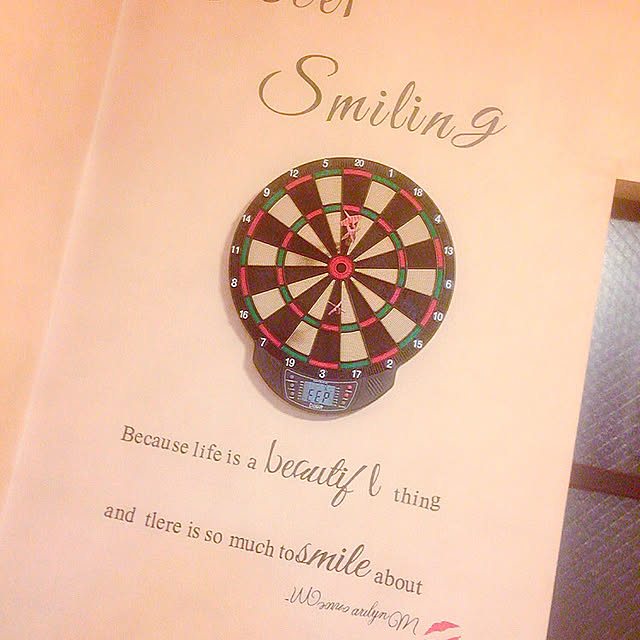 Smiling
20 1 18 4 13 6 10 15 2 17 3 19 7 16 8 11 14 9 12 5
EEP
Because life is a beautif l thing
and tlere is so much to smile about